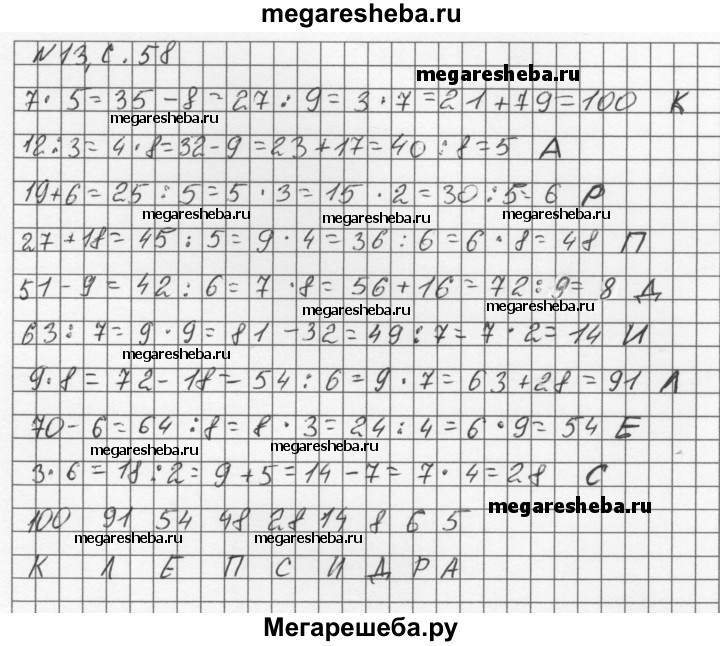 megaresheba.ru
N13, с. 58
megaresheba.ru
7·5=35-8=27:9=3·7=21+79=100 К
megaresheba.ru
12:3=4·8=32-9=23+17=40:8=5 А
19+6=25:5=5·3=15·2=30:5=6 Р
megaresheba.ru megaresheba.ru megaresheba.ru
27+18=45:5=9·4=36:6=6·8=48 П
51-9=42:6=7·8=56+16=72:9=8 Д
megaresheba.ru megaresheba.ru
63:7=9·9=81-32=49:7=7·2=14 И
megaresheba.ru
9·8=72-18=54:6=9·7=63+28=91 Л
70-6=64:8=8·3=24:4=6·9=54 Е
megaresheba.ru megaresheba.ru
3·6=18:2=9+5=14-7=7·4=28 С
megaresheba.ru
100 91 54 48 28 14 8 6 5
megaresheba.ru megaresheba.ru megaresheba.ru
К Л Е П С И Д Р А
Мегарешеба.ру